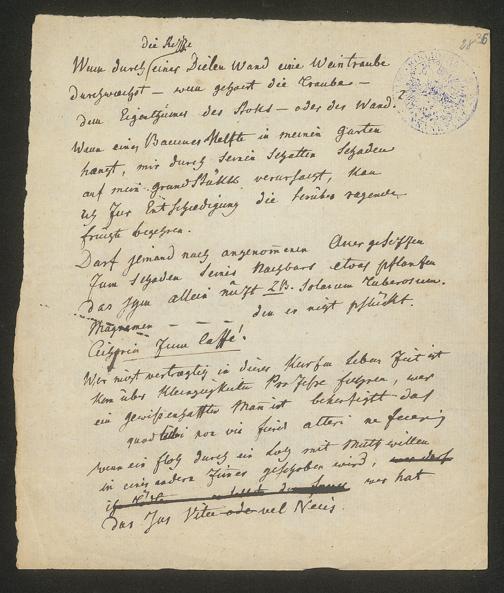 28
36
die Ritze
Wenn durch einer Dielen Wand eine Weintraube
durchwaechst – wem gehoert die Traube –
dem Eigenthümer des Stoks – oder der Wand?
Wenn eines Baumes Helfte in meinen garten
haengt, mir durch seinen Schatten schaden
auf mein grundStükk verursacht, kan
ich Zur Entschaedigung die herüber ragende
früchte begehren.
Darf jemand nach angenommenen
Zum schaden seines Nachbars etwas pflanzen
das ihm allein nüzt ZB. Solanum Tuberosum.
– – – den er nicht pflückt.
Zum Caffé!
Wer nicht vertraeglich in dieser Kurzen leben Zeit ist
kan über Kleinigkeiten Prozesse führen, wer
ein gewissenhaffter Man ist beherzigt das
quod tibi non vis fieri alteri ne feceris
wenn ein floh durch ein loch mit Muthwillen
in eines andern Zimer geschoben wird, wer darf
ich wer hat
das Jus Vitae oder vel Necis.